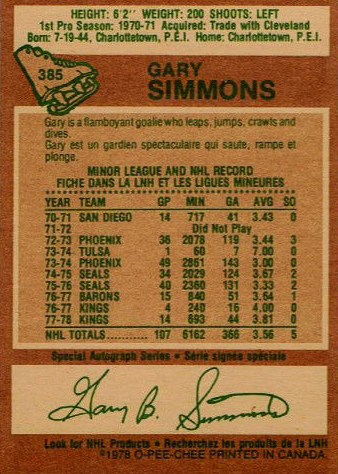 HEIGHT: 6'2" WEIGHT: 200 SHOOTS: LEFT
1st Pro Season: 1970-71 Acquired: Trade with Cleveland
Born: 7-19-44, Charlottetown, P.E.I. Home: Charlottetown, P.E.I.
385
GARY
SIMMONS
Gary is a flamboyant goalie who leaps, jumps, crawls and
dives.
Gary est un gardien spectaculaire qui saute, rampe et
plonge.
MINOR LEAGUE AND NHL RECORD
FICHE DANS LA LNH ET LES LIGUES MINEURES
YEAR TEAM GP MIN GA AVE SO
70-71 SAN DIEGO 14 717 41 3.43 0
71-72 Did Not Play
72-73 PHOENIX 36 2078 119 3.44 3
73-74 TULSA 1 60 7 7.00 0
73-74 PHOENIX 49 2861 143 3.00 0
74-75 SEALS 34 2029 124 3.67 2
75-76 SEALS 40 2360 131 3.33 2
76-77 BARONS 15 840 51 3.64 1
76-77 KINGS 4 240 16 4.00 0
77-78 KINGS 14 693 44 3.81 0
NHL TOTALS 107 6162 366 3.56 5
Special Autograph Series • Série signée spéciale
Gary B. Simmons
Look for NHL Products • Recherchez les produits de la LNH
©1978 O-PEE-CHEE PRINTED IN CANADA